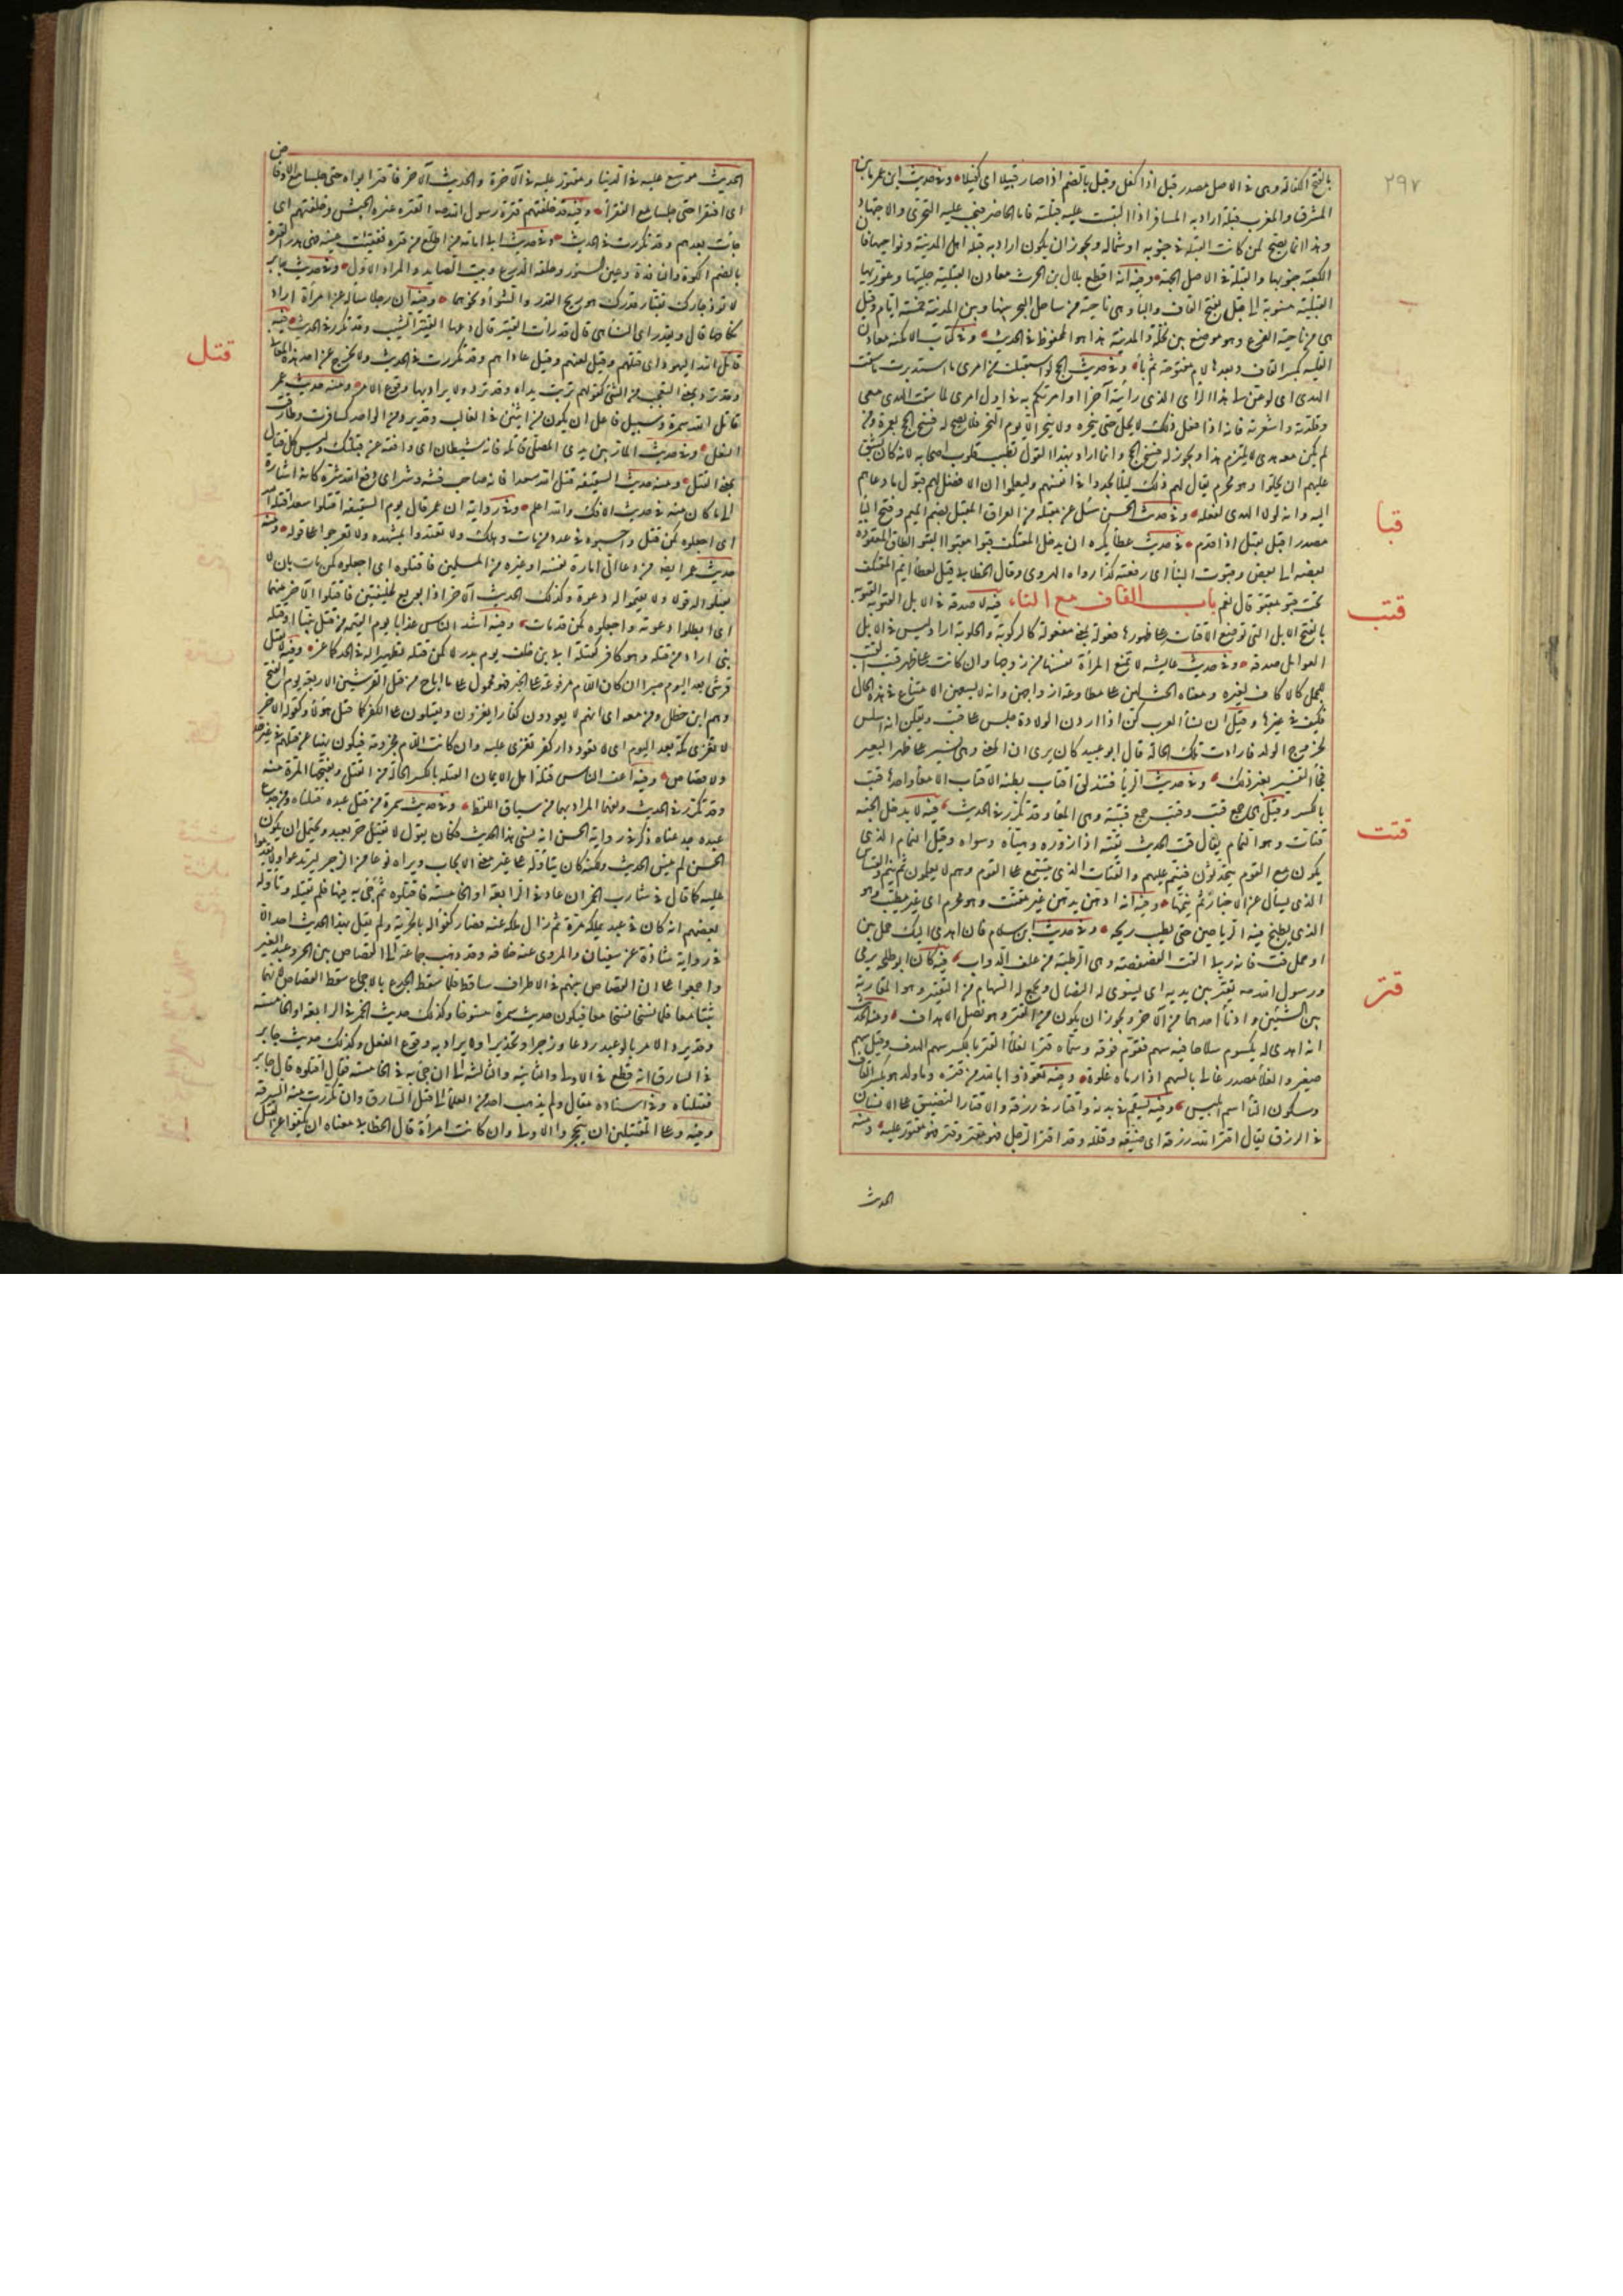 ٢٩٧
بالفتح الكفالة وهى فى الاصل مصدر قبل اذا كفل وقبل بالضم اذا صار قبيلا اى كفيلا وفى حديث ابن عمر ما بين
المشرق والمغرب قبلة اراد به المسافر اذا التبست عليه قبلته فاما الحاضر فيجب عليه التحرى والاجتهاد
وهذا انما يصح لمن كانت القبلة فى جنوبه او شماله ويجوز ان يكون اراد به قبلة اهل المدينة ونواحيها فان
الكعبة جنوبها والقبلة فى الاصل الجهة وفيه انه اقطع بلال بن الحرث معادن القبلية جلسيها وغوريها
القبلية منسوبة الى قبل بفتح القاف والباء وهى ناحية من ساحل البحر بينها وبين المدينة خمسة ايام وقيل
هى من ناحية الفرع وهو موضع بين نخلة والمدينة هذا هو المحفوظ فى الحديث وفى كتاب الامكنة معادن
القلبة بكسر القاف وبعدها لام مفتوحة ثم باء وفى حديث الحج لو استقبلت من امرى ما استدبرت ما سقت
الهدى اى لو عن لى هذا الراى الذى رأيته آخرا وامرتكم به فى اول امرى لما سقت الهدى معى
وقلدته واشعرته فانه اذا فعل ذلك لا يحل حتى ينحره ولا ينحر الا يوم النحر فلا يصح له فسخ الحج بعمرة ومن
لم يكن معه هدى لا يلتزم هذا ويجوز له فسخ الحج وانما اراد بهذا القول تطييب قلوب اصحابه لانه كان يشق
عليهم ان يحلوا وهو محرم فقال لهم ذلك ليلا يجدوا فى انفسهم وليعلموا ان الافضل لهم قبول ما دعاهم
اليه وانه لولا الهدى لفعله وفى حديث الحسن سئل عن مقبله من العراق المقبل بضم الميم وفتح الباء
مصدر اقبل يقبل اذا قدم فى حديث عطاء يكره ان يدخل المعتكف قبوا مقبوا القبو الطاق المعقود
بعضه الى بعض وقبوت البناء اى رفعته كذا رواه الهروى وقال الخطابى قيل لعطاء ايمر المعتكف
تحت قبو مقبو قال نعم باب القاف مع التاء فيه لا صدقة فى الابل القتوبة القتوبة
بالفتح الابل التى توضع الاقتاب على ظهورها فعولة بمعنى مفعولة كالركوبة والحلوبة اراد ليس فى الابل
العوامل صدقة وفى حديث عايشة لا تمنع المرأة نفسها من زوجها وان كانت على ظهر قتب القتب
للجمل كالاكاف لغيره ومعناه الحث لهن على مطاوعة ازواجهن وانه لا يسعهن الامتناع فى هذه الحال
فكيف فى غيرها وقيل ان نساء العرب كن اذا اردن الولادة جلسن على قتب ويقلن انه اسلس
لخروج الولد فارادت تلك الحالة قال ابو عبيد كان يرى ان المعنى وهى تسير على ظهر البعير
فجاء التفسير بغير ذلك وفى حديث الربا فتندلق اقتاب بطنه الاقتاب الامعاء واحدها قتب
بالكسر وقيل هى جمع قتب وقتب جمع قتبة وهى المعا وقد تكرر فى الحديث فيه لا يدخل الجنة
قتات وهو النمام يقال قت الحديث يقته اذا زوره وهيأه وسواه وقيل النمام الذى
يكون مع القوم يتحدثون فينم عليهم والقتات الذى يتسمع على القوم وهم لا يعلمون ثم ينم والقساس
الذى يسأل عن الاخبار ثم ينمها وفيه انه ادهن بدهن غير مقتت وهو محرم اى غير مطيب وهو
الذى يطبخ فيه الرياحين حتى يطيب ريحه وفى حديث ابن سلام فان اهدى اليك حمل تبن
او حمل قت فانه ربا القت الفصفصة وهى الرطبة من علف الدواب فيه كان ابو طلحة يرمى
ورسول الله صه يقتر بين يديه اى يسوى له النصال ويجمع له السهام من التقتير وهو المقاربة
بين الشيئين وادناء احدهما من الآخر ويجوز ان يكون من القتر وهو نصل الاهداف ومنه الحديث
انه اهدى له يكسوم سلاحا فيه سهم فقوم فوقه وسماه قتر الغلاء القتر بالكسر سهم الهدف وقيل سهم
صغير والغلاء مصدر غالى بالسهم اذا رماه غلوة وفيه تعوذوا بالله من قترة وما ولد هو بكسر القاف
وسكون التاء اسم ابليس وفيه بسقم فى بدنه واقتار فى رزقه والاقتار التضييق على الانسان
فى الرزق يقال اقتر الله رزقه اى ضيقه وقلله وقد اقتر الرجل فهو مقتر وقتر فهو مقتور عليه ومنه
الحديث
قبا
قتب
قتت
قتر
الحديث موسع عليه فى الدنيا ومقتور عليه فى الآخرة والحديث الآخر فاقتر ابواه حتى جلسا مع الاوفاض
اى افتقرا حتى جلسا مع الفقراء وفيه قد خلفتهم قترة رسول الله صه القترة غبرة الجيش وخلفتهم اى
جاءت بعدهم وقد تكررت فى الحديث وفى حديث ابى امامة من اطلع من قترة ففقئت عينه فهى هدر القترة
بالضم الكوة والنافذة وعين التنور وحلقة الدرع وبيت الصايد والمراد الاول وفى حديث جابر
لا تؤذ جارك بقتار قدرك هو ريح القدر والشواء ونحوهما وفيه ان رجلا سأله عن امرأة اراد
نكاحها قال وبقدر اى النساء هى قال قد رأت القتير قال دعها القتير الشيب وقد تكرر فى الحديث فيه
قاتل الله اليهود اى قتلهم وقيل لعنهم وقيل عاداهم وقد تكررت فى الحديث ولا تخرج عن احد هذه المعانى
وقد ترد بمعنى التعجب من الشئ كقولهم تربت يداه وقد ترد ولا يراد بها وقوع الامر ومنه حديث عمر
قاتل الله سمرة وسبيل فاعل ان يكون من اثنين فى الغالب وقد يرد من الواحد كسافرت وطارقت
النعل وفى حديث المار بين يدى المصلى قاتله فانه شيطان اى دافعه عن قبلتك وليس كل قتال
بمعنى القتل ومنه حديث السقيفة قتل الله سعدا فانه صاحب فتنة وشر اى دفع الله شره كانه اشارة
الى ما كان منه فى حديث الافك والله اعلم وفى رواية ان عمر قال يوم السقيفة اقتلوا سعدا قتله الله
اى اجعلوه كمن قتل واحسبوه فى عداد من مات وهلك ولا تعتدوا بمشهده ولا تعرجوا على قوله ومنه
حديث عمر ايضا من دعا الى امارة نفسه او غيره من المسلمين فاقتلوه اى اجعلوه كمن مات بان لا
تقبلوا له قولا ولا تقيموا له دعوة وكذلك الحديث الآخر اذا بويع لخليفتين فاقتلوا الآخر منهما
اى ابطلوا دعوته واجعلوه كمن قد مات وفيه اشد الناس عذابا يوم القيمة من قتل نبيا او قتله
نبى اراد من قتله وهو كافر كقتله ابى بن خلف يوم بدر لا كمن قتله تطهيرا له فى الحد كماعز وفيه لا يقتل
قرشى بعد اليوم صبرا ان كان اللام مرفوعة على الخبر فهو محمول على ما اباح من قتل القرشيين الاربعة يوم الفتح
وهم ابن خطل ومن معه اى انهم لا يعودون كفارا يغزون ويقتلون على الكفر كما قتل هؤلاء وكقوله الآخر
لا تغزى مكة بعد اليوم اى لا تعود دار كفر تغزى عليه وان كانت اللام مجزومة فيكون نهيا عن قتلهم فى غير حد
ولا قصاص وفيه اعف الناس قتلة اهل الايمان القتلة بالكسر الحالة من القتل وبفتحها المرة منه
وقد تكرر فى الحديث ويفهم المراد بهما من سياق اللفظ وفى حديث سمرة من قتل عبده قتلناه ومن جدع
عبده جدعناه ذكر فى رواية الحسن انه نسى هذا الحديث فكان يقول لا يقتل حر بعبد ويحتمل ان يكون
الحسن لم ينس الحديث ولكنه كان يتأوله على غير معنى الايجاب ويراه نوعا من الزجر ليرتدعوا ولا يقدموا
عليه كما قال فى شارب الخمر ان عاد فى الرابعة او الخامسة فاقتلوه ثم جئ به فيها فلم يقتله وتأوله
بعضهم انه كان فى عبد يملكه مرة ثم زال ملكه عنه فصار كفوا له بالحرية ولم يقل بهذا الحديث احد الا
فى رواية شاذة عن سفيان والمروى عنه خلافه وقد ذهب جماعة الى القصاص بين الحر وعبد الغير
واجمعوا على ان القصاص بينهم فى الاطراف ساقط فلما سقط الجدع بالاجماع سقط القصاص لانهما
ثبتا معا فلما نسخا نسخا معا فيكون حديث سمرة منسوخا وكذلك حديث الخمر فى الرابعة او الخامسة
وقد يرد الامر بالوعيد ردعا وزجرا وتحذيرا ولا يراد به وقوع الفعل وكذلك حديث جابر
فى السارق انه قطع فى الاولى والثانية والثالثة الى ان جئ به فى الخامسة فقال اقتلوه قال جابر
فقتلناه وفى اسناده مقال ولم يذهب احد من العلماء الى قتل السارق وان تكررت منه السرقة
وفيه وعلى المقتتلين ان ينحجزوا الاولى وان كانت امرأة قال الخطابى معناه ان يكفوا عن القتل
قتل